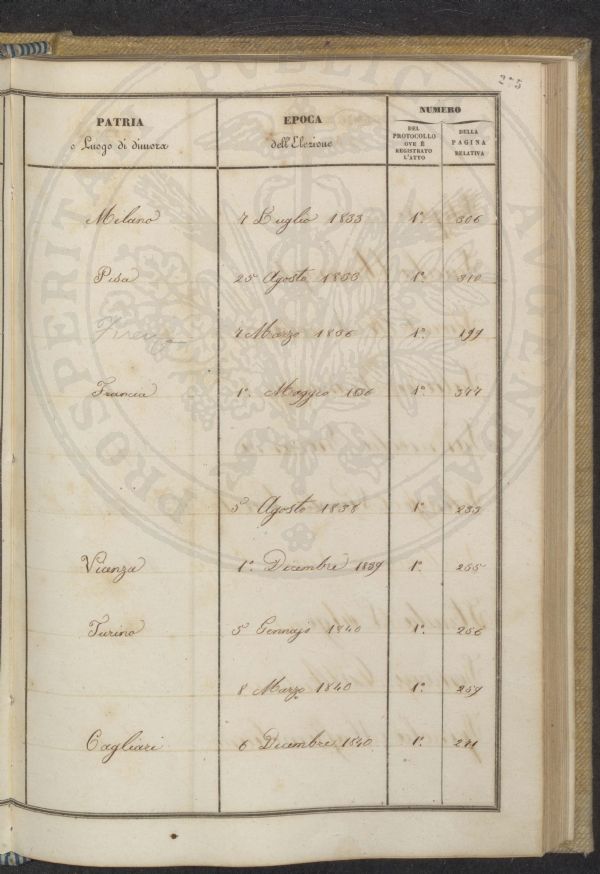 PATRIA
o Luogo di dimora
EPOCA
dell'Elezione
NUMERO
DEL
PROTOCOLLO
OVE È
REGISTRATO
L'ATTO
DELLA
PAGINA
RELATIVA
Milano 7 Luglio 1833 1º. 306
Pisa 25 Agosto 1833 1º. 310
7 Marzo 1836 1º. 199
Francia 1º. Maggio 1836 1º. 377
5 Agosto 1838 1º. 233
Vicenza 1º. Decembre 1839 1º. 255
Turino 5 Gennajo 1840 1º. 256
8 Marzo 1840 1º. 257
Cagliari 6 Decembre 1840 1º. 271
PROSPERITATI PUBLICAE AUGENDAE